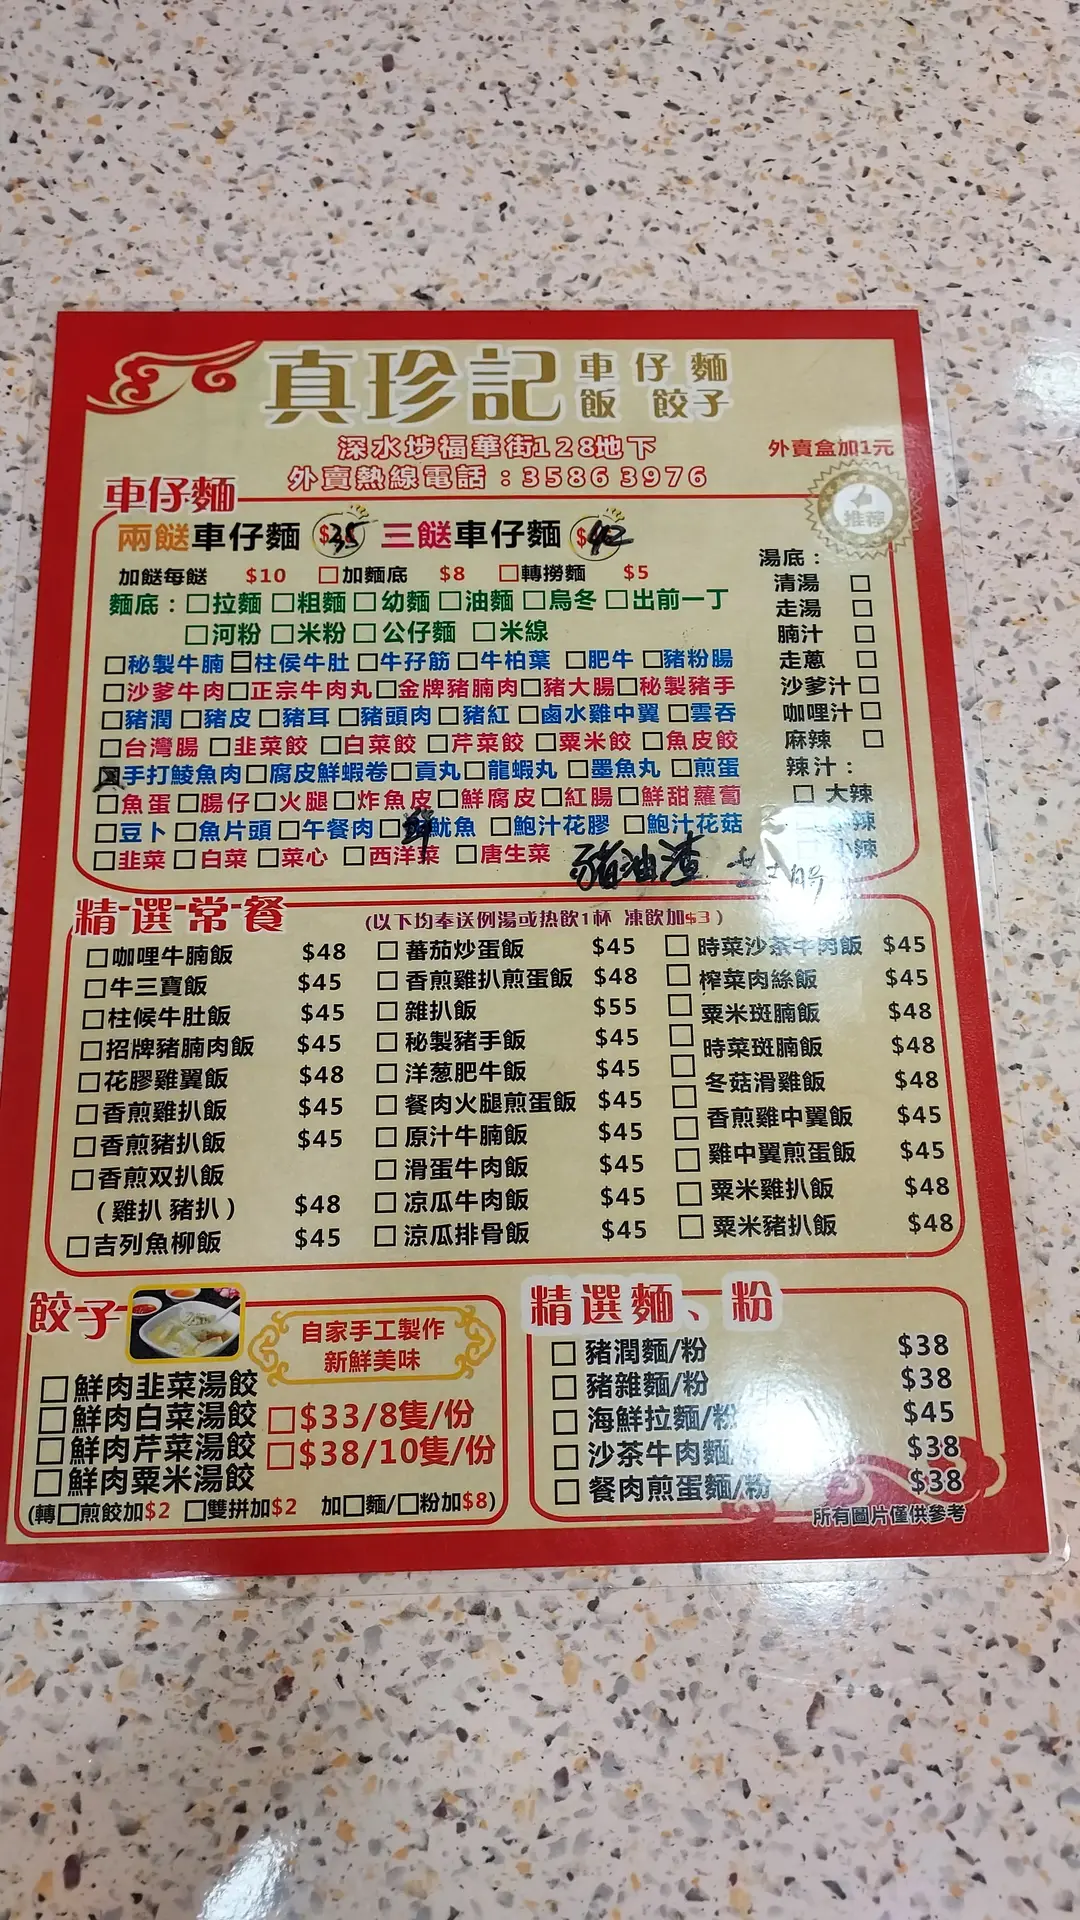 真珍記 車仔麵
飯 餃子
深水埗福華街128地下
外賣盒加1元
外賣熱線電話：3586 3976
車仔麵
推荐
兩餸車仔麵 $35 三餸車仔麵 $42
加餸每餸 $10 □加麵底 $8 □轉撈麵 $5
麵底：□拉麵 □粗麵 □幼麵 □油麵 □烏冬 □出前一丁
□河粉 □米粉 □公仔麵 □米線
□秘製牛腩 □柱侯牛肚 □牛孖筋 □牛柏葉 □肥牛 □豬粉腸
□沙爹牛肉 □正宗牛肉丸 □金牌豬腩肉 □豬大腸 □秘製豬手
□豬潤 □豬皮 □豬耳 □豬頭肉 □豬紅 □鹵水雞中翼 □雲吞
□台灣腸 □韭菜餃 □白菜餃 □芹菜餃 □粟米餃 □魚皮餃
□手打鯪魚肉 □腐皮鮮蝦卷 □貢丸 □龍蝦丸 □墨魚丸 □煎蛋
□魚蛋 □腸仔 □火腿 □炸魚皮 □鮮腐皮 □紅腸 □鮮甜蘿蔔
□豆卜 □魚片頭 □午餐肉 □鮮魷魚 □鮑汁花膠 □鮑汁花菇
□韭菜 □白菜 □菜心 □西洋菜 □唐生菜 豬油渣
湯底：
清湯 □
走湯 □
腩汁 □
走蔥 □
沙爹汁 □
咖喱汁 □
麻辣 □
辣汁：
□ 大辣
辣
小辣
精選常餐 (以下均奉送例湯或热飲1杯 凍飲加$3)
□咖喱牛腩飯 $48
□牛三寶飯 $45
□柱候牛肚飯 $45
□招牌豬腩肉飯 $45
□花膠雞翼飯 $48
□香煎雞扒飯 $45
□香煎豬扒飯 $45
□香煎双扒飯
(雞扒 豬扒) $48
□吉列魚柳飯 $45
□ 蕃茄炒蛋飯 $45
□ 香煎雞扒煎蛋飯 $48
□ 雜扒飯 $55
□ 秘製豬手飯 $45
□ 洋葱肥牛飯 $45
□ 餐肉火腿煎蛋飯 $45
□ 原汁牛腩飯 $45
□ 滑蛋牛肉飯 $45
□ 凉瓜牛肉飯 $45
□ 涼瓜排骨飯 $45
□ 時菜沙茶牛肉飯 $45
□ 榨菜肉絲飯 $45
□ 粟米斑腩飯 $48
□ 時菜斑腩飯 $48
□ 冬菇滑雞飯 $48
□ 香煎雞中翼飯 $45
□ 雞中翼煎蛋飯 $45
□ 粟米雞扒飯 $48
□ 粟米豬扒飯 $48
餃子
自家手工製作
新鮮美味
□鮮肉韭菜湯餃
□鮮肉白菜湯餃
□鮮肉芹菜湯餃
□鮮肉粟米湯餃
□$33/8隻/份
□$38/10隻/份
(轉□煎餃加$2 □雙拼加$2 加□麵/□粉加$8)
精選麵、粉
□ 豬潤麵/粉 $38
□ 豬雜麵/粉 $38
□ 海鮮拉麵/粉 $45
□ 沙茶牛肉麵 $38
□ 餐肉煎蛋麵/粉 $38
所有圖片僅供參考